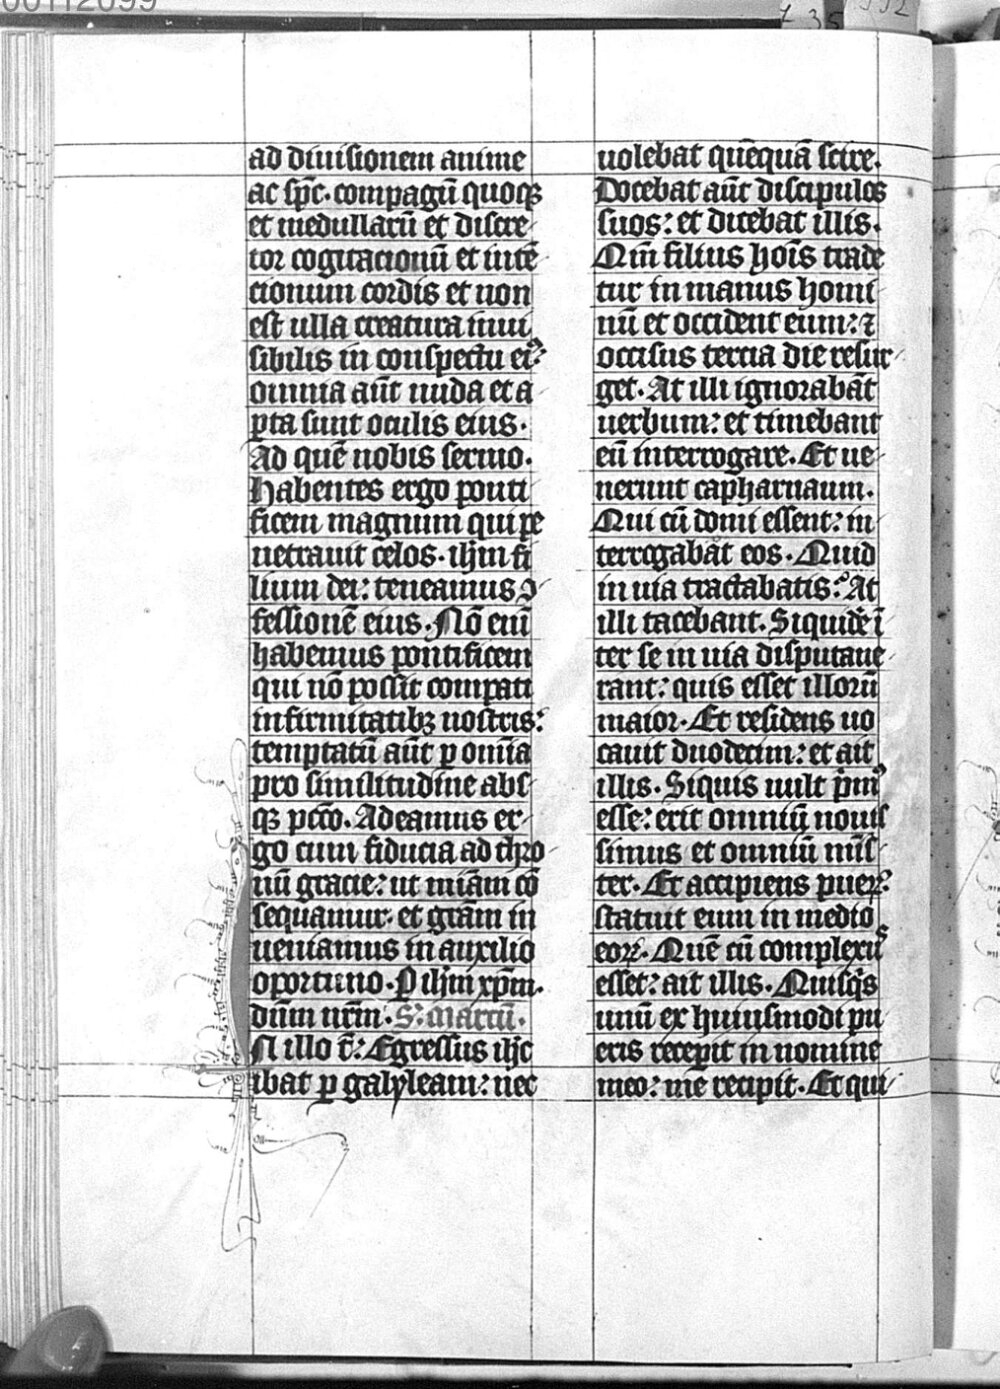 ad diuisionem anime
ac sp̅c· compagu̅ quoqꝫ
et medullaru̅ et discre
tor cogitacionu̅ et inte̅
cionum cordis et non
est ulla creatura inui
sibilis in conspectu eiꝰ:
omnia au̅t nuda et a
ꝑta sunt oculis eius·
Ad que̅ nobis sermo·
Habentes ergo ponti
ficem magnum qui pe
netrauit celos· ih̅m fi
lium dei: teneamus ꝯ
fessione̅ eius· No̅ eni̅
habemus pontificem
qui no̅ possit compati
infirmitatibꝫ nostris:
temptatu̅ au̅t ꝑ om̅ia
pro similitudine abs
qꝫ pcc̅o· Adeamus er
go cum fiducia ad thro
nu̅ gracie: ut mi̅am co̅
sequamur· et gr̅am in
ueniamus in auxilio
oportuno· P ih̅m xp̅m·
dn̅m nr̅m· S: marcu̅·
N illo t̅: Egressus ih̅c
ibat ꝑ galyleam: nec
uolebat que̅qua̅ scire·
Docebat au̅t discipulos
suos: et dicebat illis·
Qm̅ filius ho̅is trade
tur in manus homi
nu̅ et occident eum: ⁊
occisus tercia die resur
get· At illi ignoraba̅t
uerbum: et timebant
eu̅ interrogare· Et ue
nerunt capharnaum·
Qui cu̅ domi essent: in
terrogabat eos· Quid
in uia tractabatis? At
illi tacebant· Siquide̅ i̅
ter se in uia disputaue
rant: quis esset illoru̅
maior· Et residens uo
cauit duodecim: et ait
illis· Siquis uult p̅mꝰ
esse: erit omniu̅ nouis
simus et omniu̅ mi̅s
ter· Et accipiens pueꝝ:
statuit eum in medio
eoꝝ· Que̅ cu̅ complexus
esset: ait illis· Quisq̅s
unu̅ ex huiusmodi pu
eris recepit in nomine
meo: me recipit· Et qui